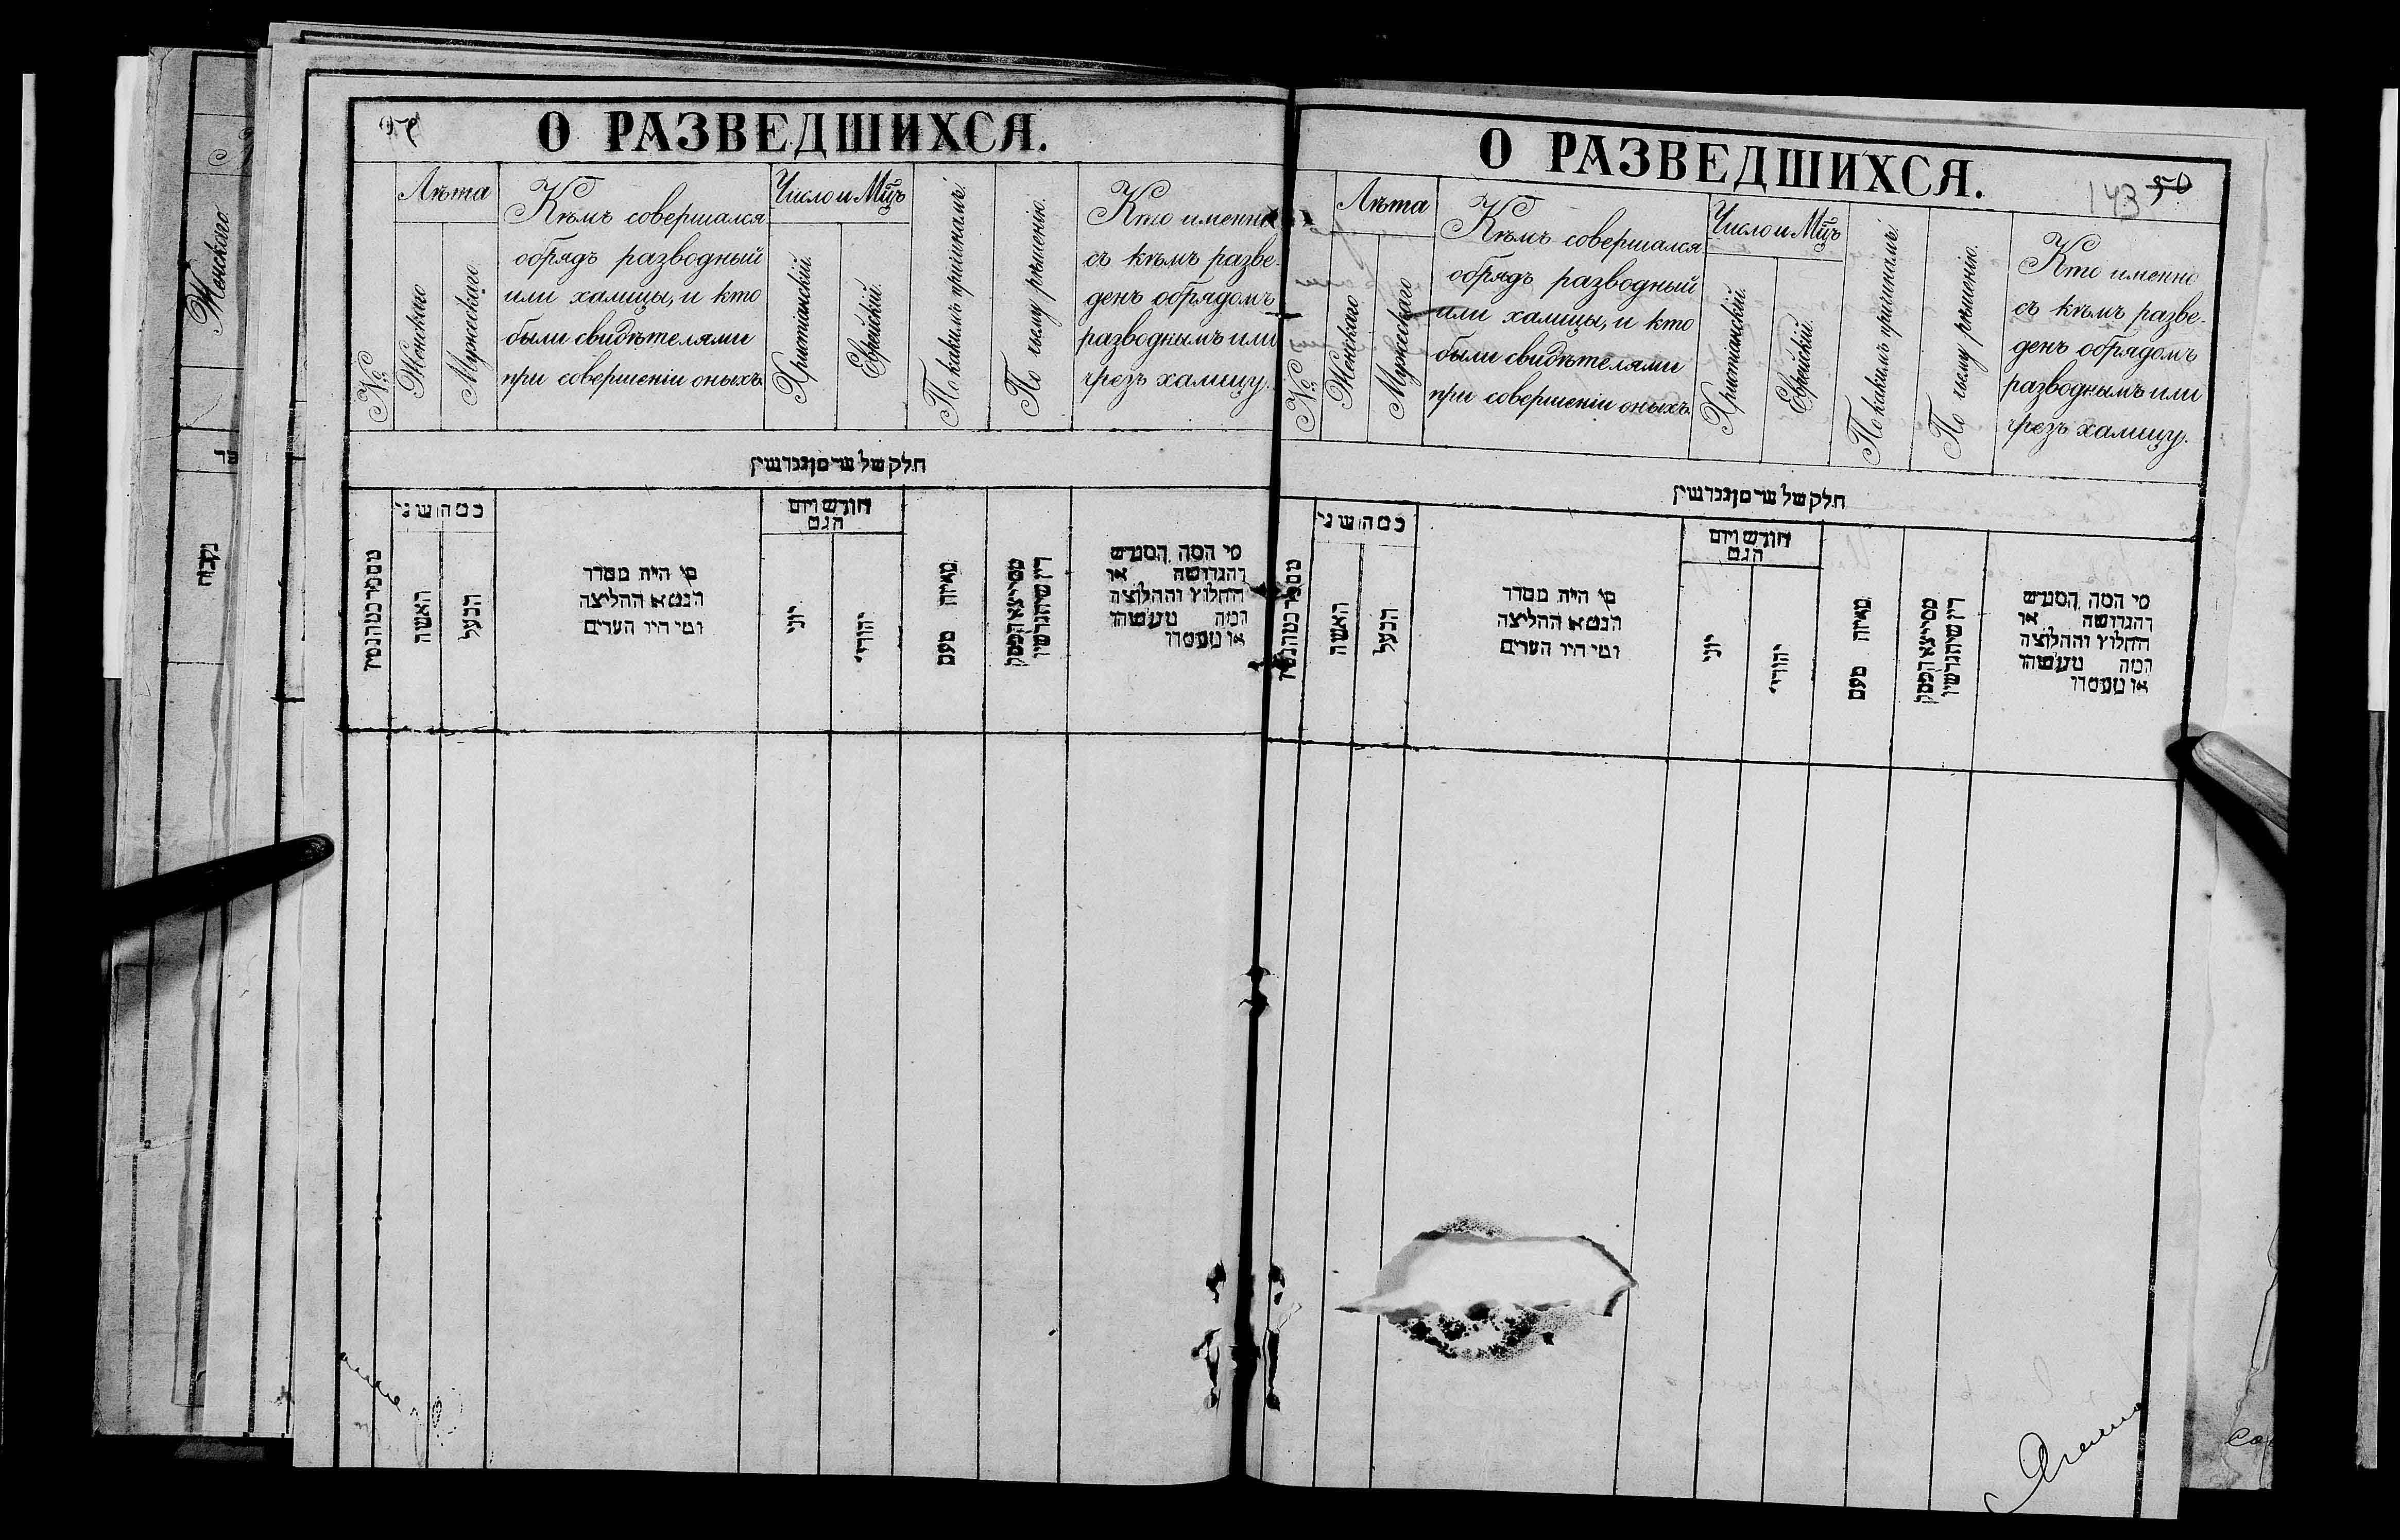 О РАЗВЕДШИХСЯ.
№
Лѣта
Женскаго
Мужескаго
Кѣмъ совершался
обрядъ разводный
или халицы, и кто
были свидѣтелями
при совершеніи оныхъ.
Число и Мцъ
Христіанскій.
Еврейскій.
По какимъ причинамъ.
По чьему рѣшенію.
Кто именно
съ кѣмъ разве-
денъ обрядомъ
разводнымъ или
чрезъ халицу.
חלק של
כמה שני
האשה
הבעל
מי היה מסדר
הגט או החליצה
ומי היו העדים
חודש ויום
הגט
יוני
יהודי
מאיזה טעם
מי המה המגרש
והגרושה או
החלוץ והחלוצה
О РАЗВЕДШИХСЯ.
143 50
№
Лѣта
Женскаго
Мужескаго
Кѣмъ совершался
обрядъ разводный
или халицы, и кто
были свидѣтелями
при совершеніи оныхъ.
Число и Мцъ
Христіанскій.
Еврейскій.
По какимъ причинамъ.
По чьему рѣшенію.
Кто именно
съ кѣмъ разве-
денъ обрядомъ
разводнымъ или
чрезъ халицу.
חלק של
כמה שני
האשה
הבעל
מי היה מסדר
הגט או החליצה
ומי היו העדים
חודש ויום
הגט
יוני
יהודי
מאיזה טעם
מי המה המגרש
והגרושה או
החלוץ והחלוצה
Женскаго
נקבה